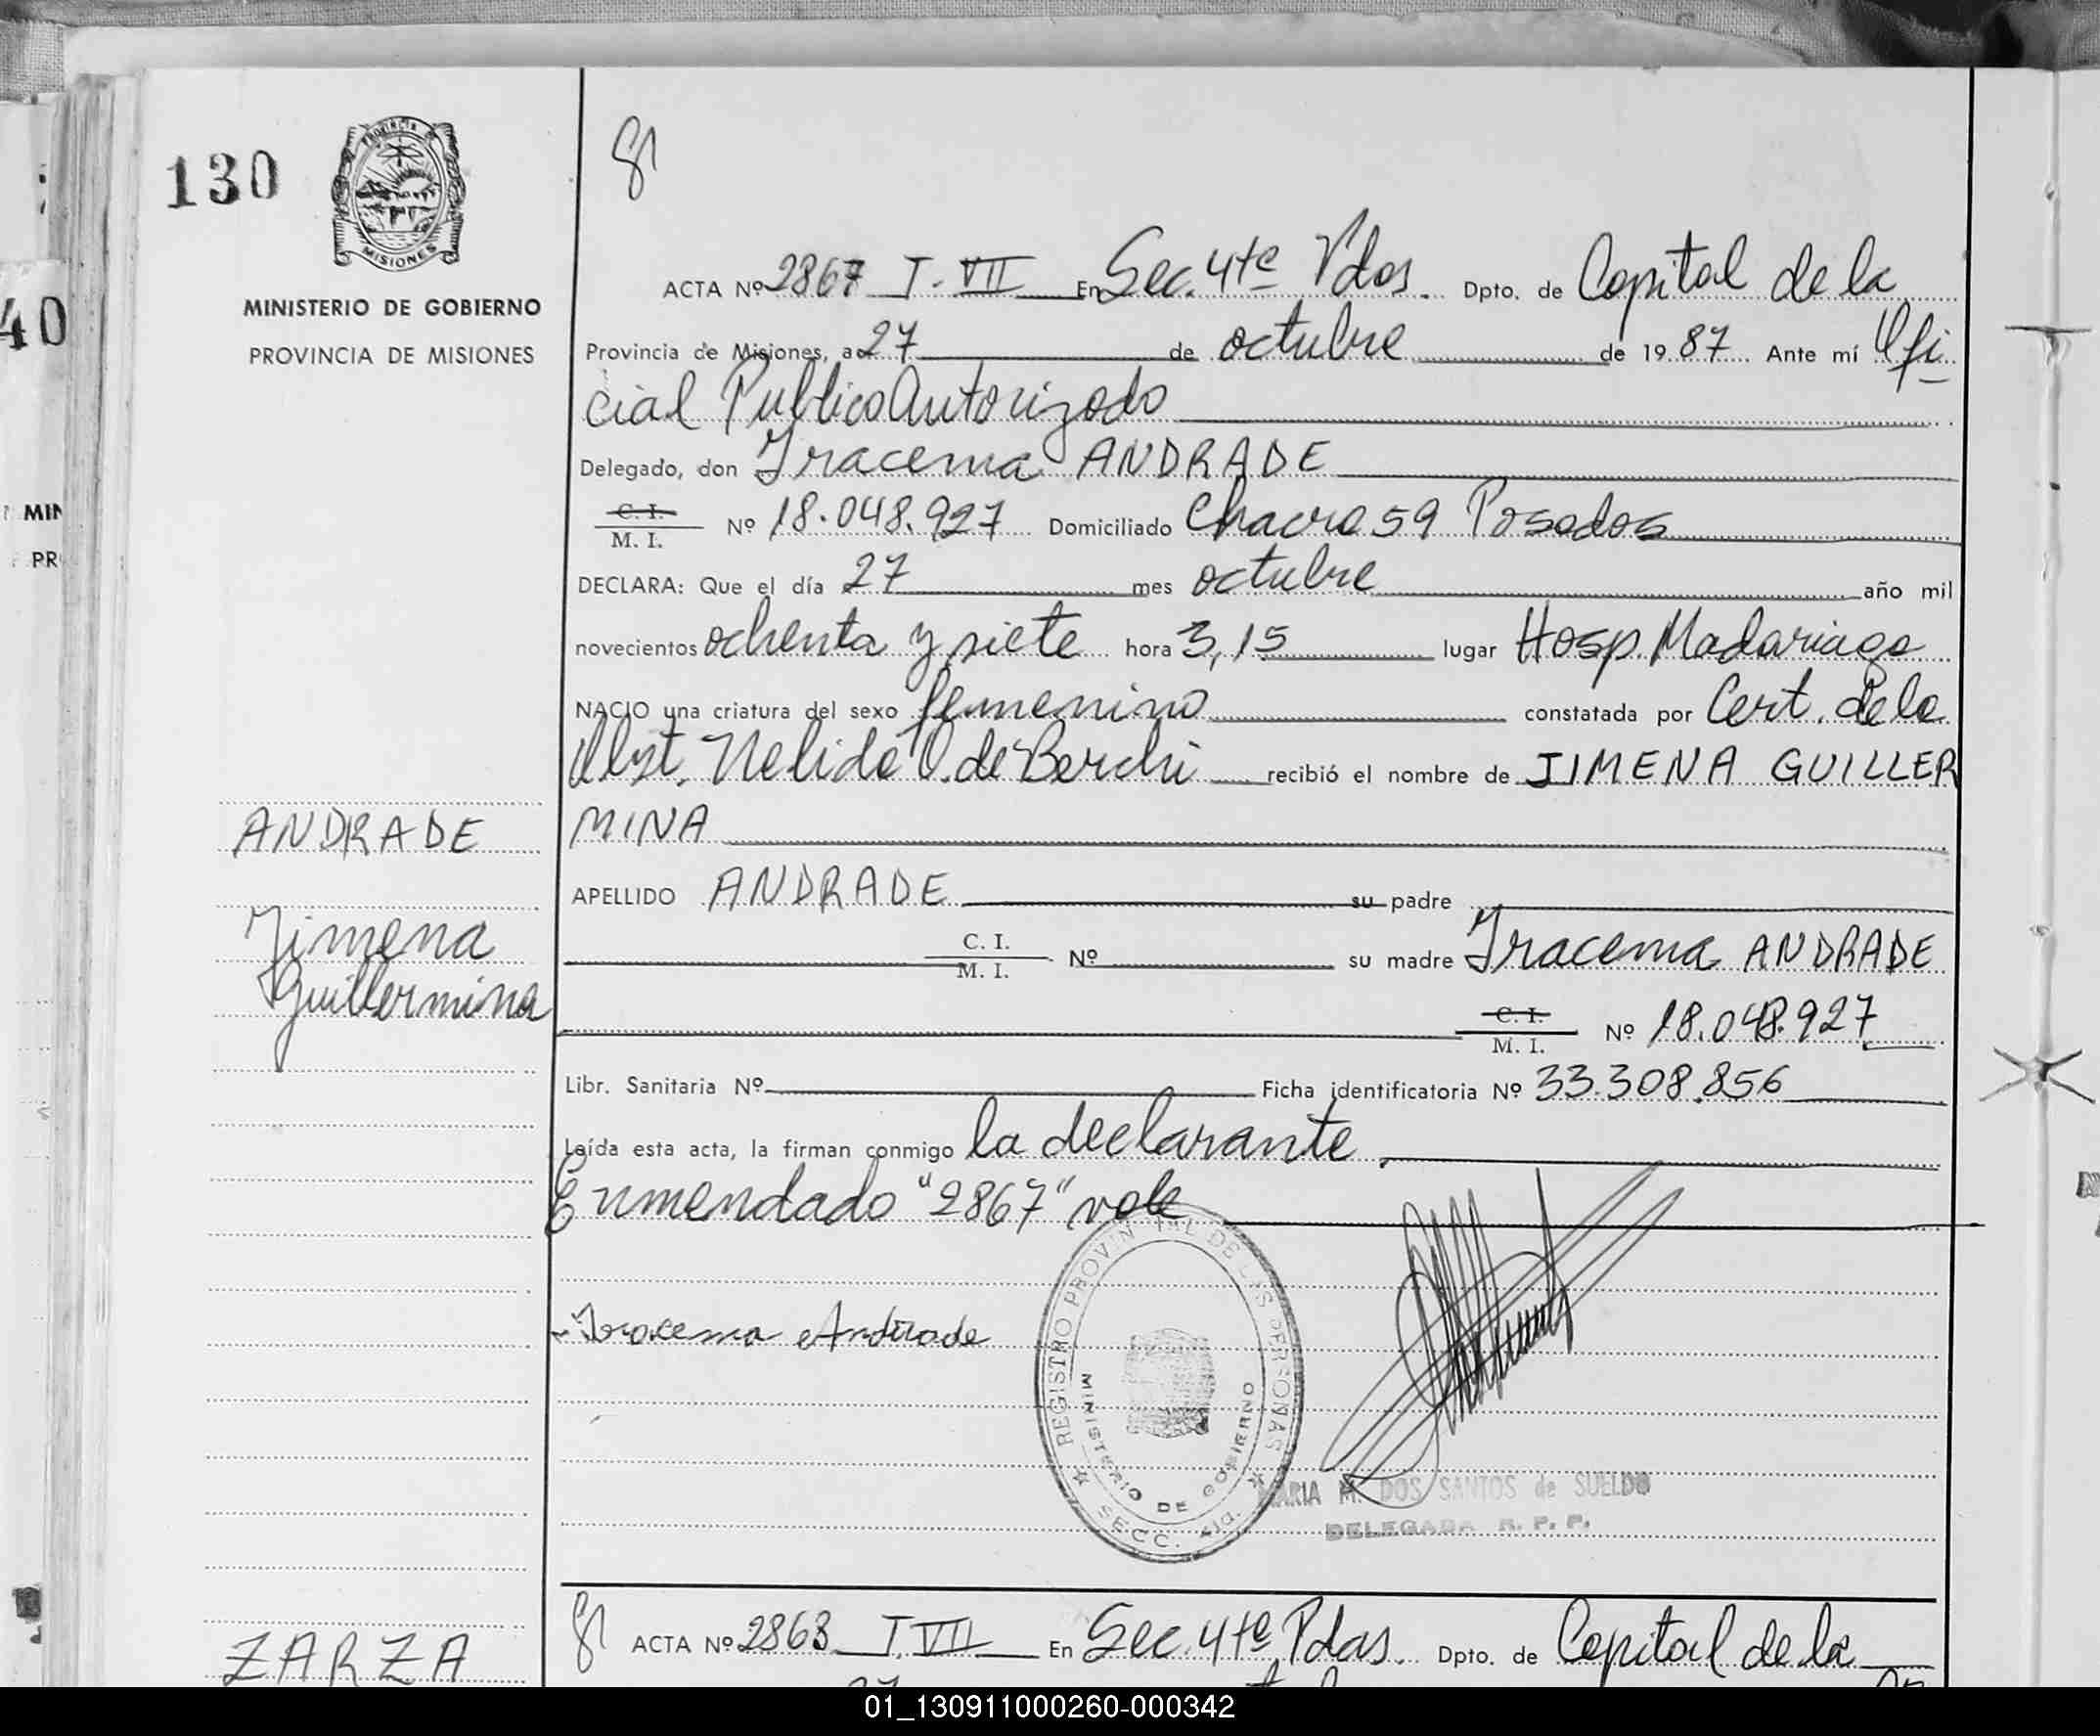 130
PROVINCIA
MISIONES
MINISTERIO DE GOBIERNO
PROVINCIA DE MISIONES
40
MIN
PR
ACTA Nº 2867 T. VII En Sec. 4ta Pdas. Dpto. de Capital de la
Provincia de Misiones, a 27 de octubre de 1987 Ante mí Ofi
cial Publico Autorizado
Delegado, don Iracema ANDRADE
C. I.
M. I. Nº 18.048.927 Domiciliado Chacra 59 Posadas
DECLARA: Que el día 27 mes octubre año mil
novecientos ochenta y siete hora 3,15 lugar Hosp. Madariaga
NACIO una criatura del sexo femenino constatada por Cert. de la
Obst. Nelida O. de Berchi recibió el nombre de JIMENA GUILLER
MINA
ANDRADE
Jimena
Guillermina
APELLIDO ANDRADE su padre
C. I.
M. I. Nº su madre Iracema ANDRADE
C. I.
M. I. Nº 18.048.927
Libr. Sanitaria Nº Ficha identificatoria Nº 33.308.856
Leída esta acta, la firman conmigo la declarante.
Enmendado "2867" vale
Iracema Andrade
REGISTRO PROVINCIAL DE LAS PERSONAS
MINISTERIO DE GOBIERNO
SECC. 4ta.
MARIA M. DOS SANTOS de SUELDO
DELEGADA R. P. P.
ZARZA
ACTA Nº 2868 T. VII En Sec. 4ta Pdas. Dpto. de Capital de la
01_130911000260-000342